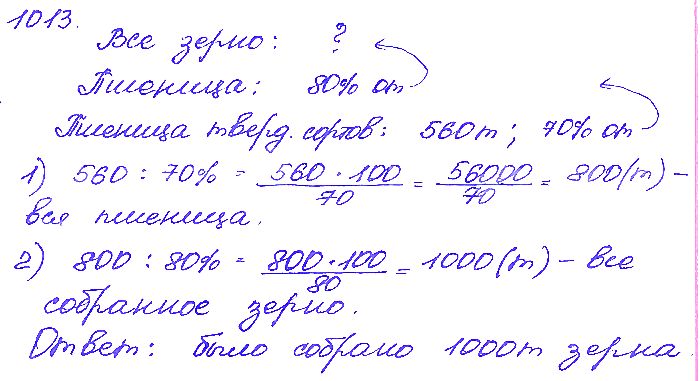 1013.
Все зерно: ?
Пшеница: 80% от
Пшеница тверд. сортов: 560т; 70% от
1) 560 : 70% = 560 · 100 / 70 = 56000 / 70 = 800(т) –
вся пшеница.
2) 800 : 80% = 800 · 100 / 80 = 1000(т) – все
собранное зерно.
Ответ: было собрано 1000т зерна.